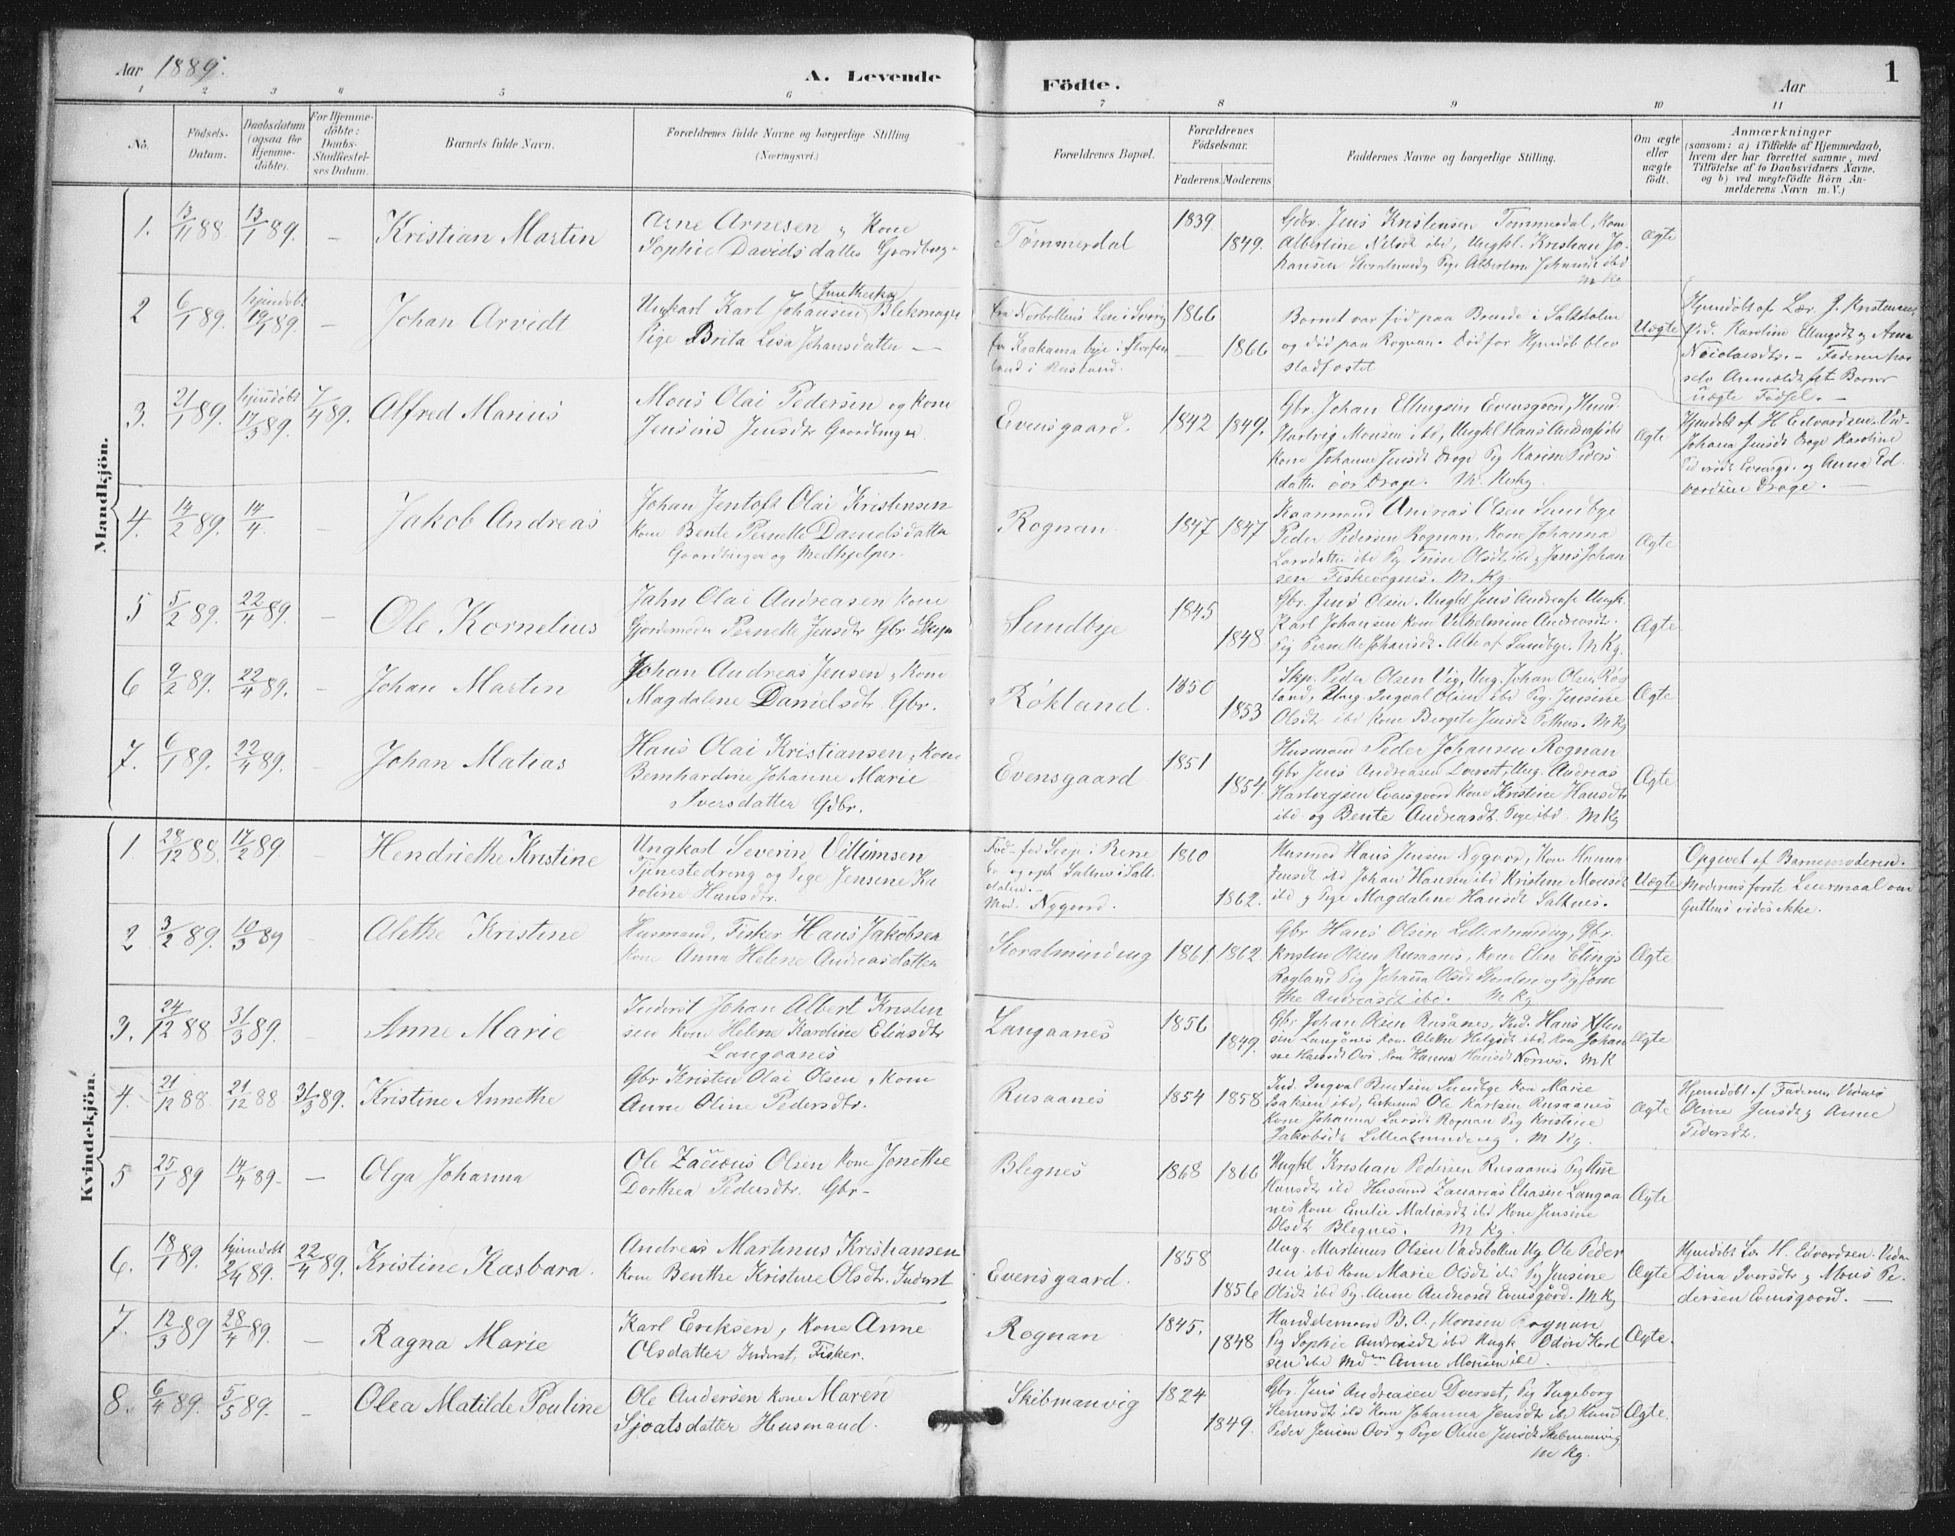 Aar 1889.
A. Levende
Födte.
Aar
1
1 2 3 4 5 6 7 8 9 10 11
No.
Födsels-
Datum.
Daabsdatum
(ogsaa for
Hjemme-
döbte).
For Hjemme-
döbte:
Daabs-
Stadfæstel-
ses Datum.
Barnets fulde Navn.
Forældrenes fulde Navne og borgerlige Stilling
(Næringsvei.)
Forældrenes Bopæl.
Forældrenes
Födselsaar.
Faderens. Moderens
Faddernes Navne og borgerlige Stilling.
Om ægte
eller
uægte
födt.
Anmærkninger
(saasom: a) i Tilfælde af Hjemmedaab,
hvem der har forrettet samme, med
Tilföielse af to Daabsvidners Navne,
og b) ved uægtefödte Börn An-
melderens Navn m. V.)
Mandkjön.
1. 13/11 88. 13/1 89. – Kristian Martin
Arne Arnesen, Kone
Sophie Davidsdatter Gaardbrug-
Tømmerdal
1839
1849.
Gbr. Jens Kristensen Tømmerdal, Kone
Albertine Nilsdt ibd, Ungkl. Kristian Jo-
hansen
Ægte
2 6/1 89. hjemdøbt 19/1 89 – Johan Arvidt
Ungkarl Karl Johansen Blekmager
Pige Brita Lisa Johansdatter –
fra Norbottens Len i Sverig
1866
1866
Barnet var fød paa Brænde i Saltdalen
og død paa Rognan. Død før Hjemdøb blev
stadfæstet
Uægte
Hjemdøbt af Lær. J. Kristensen
Vid. Karoline Ellingsdt og Anna
Nicolaisdtr. – Faderen har
selv Anmeldt Barnets
uægte Fødsel. –
3. 21/1 89. hjemdøbt 17/3 89. 7/4 89. Alfred Marius
Mons Olai Pedersen og kone
Jensine Jensdtr Gaardbruger.
Evensgaard.
1842 1849.
Gbr. Johan Ellingsen Evensgaard,
Hartvig Monsen ibd, Ungkl Hans Andreas ibd
Kone Johanne Jensdt Drage Pig Karen Peders
datter Drage. M. Kirkg.
Ægte
Hjemdøbt af H Edvardsen. Vid-
Johana Jensdt Drage Karoline
Evensgd. og Anna Ed-
vardsen Drage. –
4. 14/2 89. 14/4 – Jakob Andreas
Johan Jentoft Olai Kristensen
kone Bente Pernelle Danielsdatter
Gaardbruger og Medhjelper.
Rognan.
1847 1847
Kaarmand Andreas Olsen Sundbye
Peder Pedersen Rognan, Kone Johanna
Larsdatter ibd Pg Trine Olsdt ibd, Jens Johan
sen Fiskevognes. M. Kg.
Ægte
5 5/2 89. 22/4 89. – Ole Kornelius
Jahn Olai Andreasen kone
Gjordemoder Pernelle Jensdtr Gbr
Sundbye
1845
1848
Gbr. Jens Olsen. Ungkl Jens Andreas Ungk.
Karl Johansen kone Vilhelmine Andreasdt.
Pig Pernelle Johansdt. Alle af Sundbye. M Kg.
Ægte
6 9/2 89. 22/4 89. – Johan Martin
Johan Andreas Jensen, Kone
Magdalene Danielsdtr. Gbr.
Røkland.
1850
1853
Skp. Peder Olsen Vig, Ung. Johan Olsen Røk
land, Ung. Ingval Olsen ibd Pig. Jensine
Olsdt ibd Kone Bergete Jensdt Pothus. M Kg
Ægte
7. 6/1 89. 22/4 89. Johan Matias
Hans Olai Kristiansen, kone
Bernhardine Johanne Marie
Iversdatter Gbr.
Evensgaard
1851
1854.
Husmand Peder Johansen Rognan
Gbr Jens Andreasen Dverset, Ung. Andreas
Hartvigsen Evensgaard kone Kristine Hansdtr
ibd og Bente Andreasdt Pige ibd. M Kg
Ægte
Kvindekjön.
1 28/12 88. 17/2 89 – Hendriethe Kristine
Ungkarl Severin Villumsen
Tjenestedreng og Pige Jensine Ka
roline Hansdtr.
Mod. Nygaard.
1860
1862.
Husmd Hans Jensen Nygaard, Kone Hanna
Jensdt ibd Johan Hansen ibd Kristine Monsdt
ibd og Pige Magdalene Hansdt Saltnes.
Uægte
Opgivet af Barnemoderen.
Moderens første Leiermaal om
Guttens vides ikke.
2 3/2 89. 10/3 89 – Alethe Kristine
Husmand, Fisker Hans Jakobsen
kone Anna Helene Andreasdatter
Storalmindug
1861 1862
Gbr Hans Olsen Lillealmindug, Gbr.
Kristen Olsen Rusaanes, Kone Elen Elings
Rogland Pig Johana Olsdt
the Andreasdt ibd. M Kg
Ægte
3. 24/12 88 31/3 89. – Anne Marie
Inderst Johan Albert Kristen
sen kone Helene Karoline Eliasdtr
Langaanes
Langaanes
1856
1849.
Gbr Johan Olsen Rusånes, Ind. Hans
sen Langånes kone Alethe Helgsdt ibd, Kone Johan
ne Hansdt kone Hanna Hansdt Nornes. M K
Ægte
4. 21/12 88. 21/12 88 31/3 89. Kristine Annethe
Gbr Kristen Olai Olsen, kone
Anne Oline Pedersdtr.
Rusaanes
1854 1858
Ind. Ingval Bentsen Sundbye kone Marie
Isaksen ibd, Ole Karlsen Rusaanes
Kone Johanna Larsdt Rognan Pig Kristine
Jakobsdt Lillealmindug. M Kg.
Ægte
Hjemdøbt af Faderen Vidnes
Anne Jensdt og Anne
Pedersdt.
5 25/1 89 14/4 89– – Olga Johanna
Ole Zacious Olsen kone Jonethe
Dorthea Pedersdtr. Gbr–
Blegnes
1868 1866
Ungkl Kristian Pedersen Rusaanes Pig
Hansdt ibd Husmd Zacarias Eliasen Langaa
nes kone Emelie Matiasdt ibd Kone Jensine
Olsdt Blegnes. M Kg.
Ægte
6. 18/1 89. hjemdøbt 2/4 89. 22/4 89. Kristine Kasbara.
Andreas Martinus Kristiansen
kone Benthe Kristine Olsdtr. Inderst
Evensgaard.
1858
1856
Ung. Martinus Olsen Vadsbollen Ug Ole Peder
sen ibd kone Marie Olsdt ibd Pig Jensine
Olsdt ibd Pg. Anne Andreasdt Evensgård. M Kg
Ægte
Hjemdøbt Lær H. Edvardsen. Vidn.
Dina Iversdtr og Mons Pe-
dersen Evensgaard. –
7. 12/3 89 28/4 89. – Ragna Marie
Karl Eriksen, Kone Anne
Olsdatter Inderst, Fisker.
Rognan
1845.
1848
Handelsmand B. O. Hansen Rognan
Pig Sophie Andreasdt ibd Ungk. Odin Karl
sen ibd Mdm Anne Monsen ibd.
Ægte.
8. 6/4 89. 5/5 89. – Olea Matilde Pouline
Ole Andersen kone Maren
Sjoatsdatter Husmand.
Skibmanvig
1824
1849.
Gbr. Jens Andreasen Dverset, Pig Ingeborg
Stenersdt ibd Kone Johanna Jensdt ibd
Peder Jensen og Pige Oline Jensdt Skibmanvig
M Kg.
Ægte.